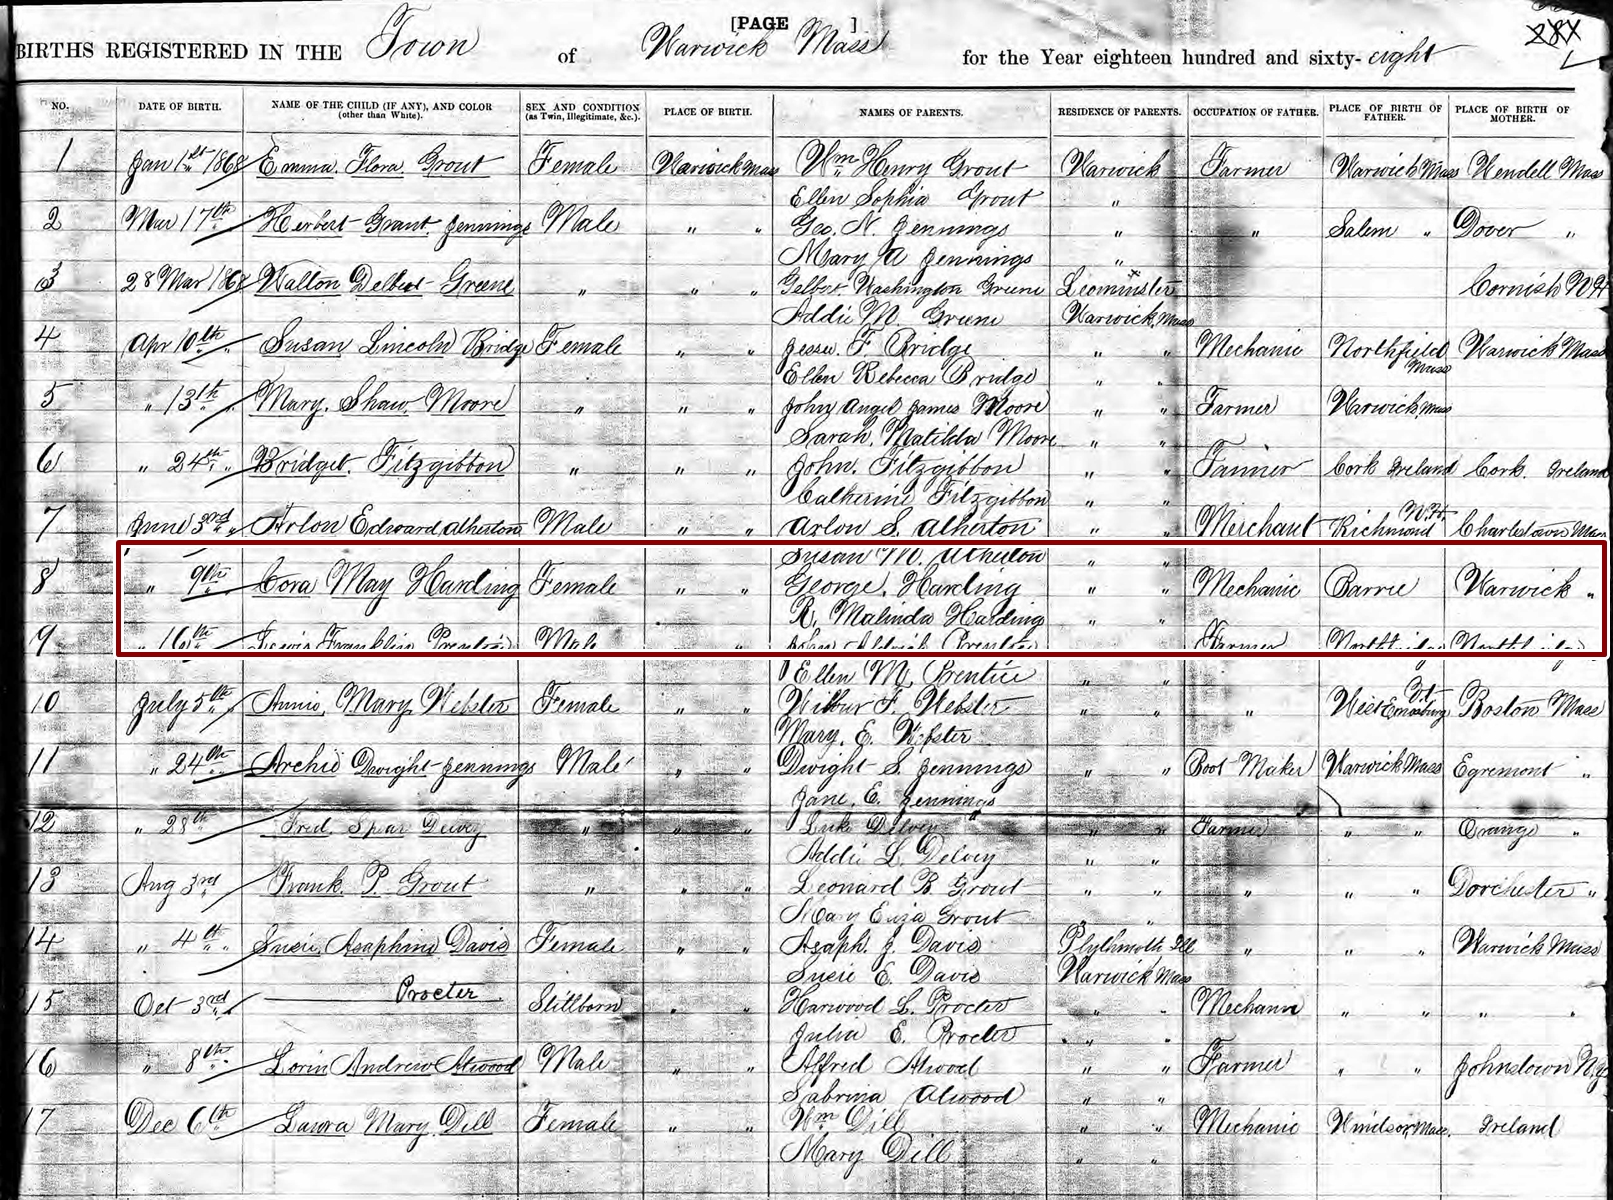 [PAGE ]
287
BIRTHS REGISTERED IN THE Town of Warwick Mass for the Year eighteen hundred and sixty-eight
NO. DATE OF BIRTH. NAME OF THE CHILD (IF ANY), AND COLOR (other than White). SEX AND CONDITION (as Twin, Illegitimate, &c.). PLACE OF BIRTH. NAMES OF PARENTS. RESIDENCE OF PARENTS. OCCUPATION OF FATHER. PLACE OF BIRTH OF FATHER. PLACE OF BIRTH OF MOTHER.
1 Jan 1st 1868 Emma Flora Grout Female Warwick Mass Wm Henry Grout Warwick Farmer Warwick Mass Wendell Mass
Ellen Sophia Grout "
2 Mar 17th Herbert Grant Jennings Male " " Geo. N. Jennings " " Salem " Dover "
Mary A Jennings "
3 28 Mar 1868 Walton Delbert Greene " " " Washington Greene Leominster Cornish N H
Addie M Greene Warwick, Mass
4 Apr 10th " Susan Lincoln Bridge Female " " Jesse F Bridge " " Mechanic Northfield Mass Warwick Mass
Ellen Rebecca Bridge " "
5 " 13th " Mary Shaw Moore " " " John Angel James Moore " " Farmer Warwick, Mass
Sarah Matilda Moore " "
6 " 24th " Bridget Fitzgibbon " " " John Fitzgibbon " " Farmer Cork Ireland Cork Ireland
Catherine Fitzgibbon " "
7 June 3rd " Arlon Edward Atherton Male " " Arlon S. Atherton " " Merchant Richmond N.H. Charlestown Mass
Susan M. Atherton " "
8 " 9th Cora May Harding Female " " George Harding " " Mechanic Barre Warwick "
R. Malinda Harding " "
9 " 16th Lewis Franklin Prentice Male John Aldrich Prentice Farmer
Ellen M. Prentice " "
10 July 5th " Annie Mary Webster Female " " Wilbur F. Webster " " " West Vt Boston Mass
Mary E. Webster
11 " 24th " Archie Dwight Jennings Male " " Dwight S. Jennings " " Boot Maker Warwick Mass Egremont "
Jane E. Jennings
12 " 28th Fred Spear Delvey " " " Delvey " " Farmer " " Orange "
Addie L Delvey " "
13 Aug 3rd Frank P. Grout " " " Leonard B Grout " " " " " Dorchester "
Mary Eliza Grout " "
14 " 4th " Susie Asaphine Davis Female " " Asaph J Davis Plythmoth Ill " " " Warwick Mass
Susie E. Davis Warwick Mass
15 Oct 3rd Procter Stillborn " " Harwood L. Procter " " Mechanic " " " "
Julia E. Procter " "
16 " 8th " Lorin Andrew Atwood Male " " Alfred Atwood " " Farmer " " Johnstown N.Y.
Sabrina Atwood " "
17 Dec 6th Laura Mary Dill Female " " Wm Dill " " Mechanic Windsor, Mass. Ireland
Mary Dill " "